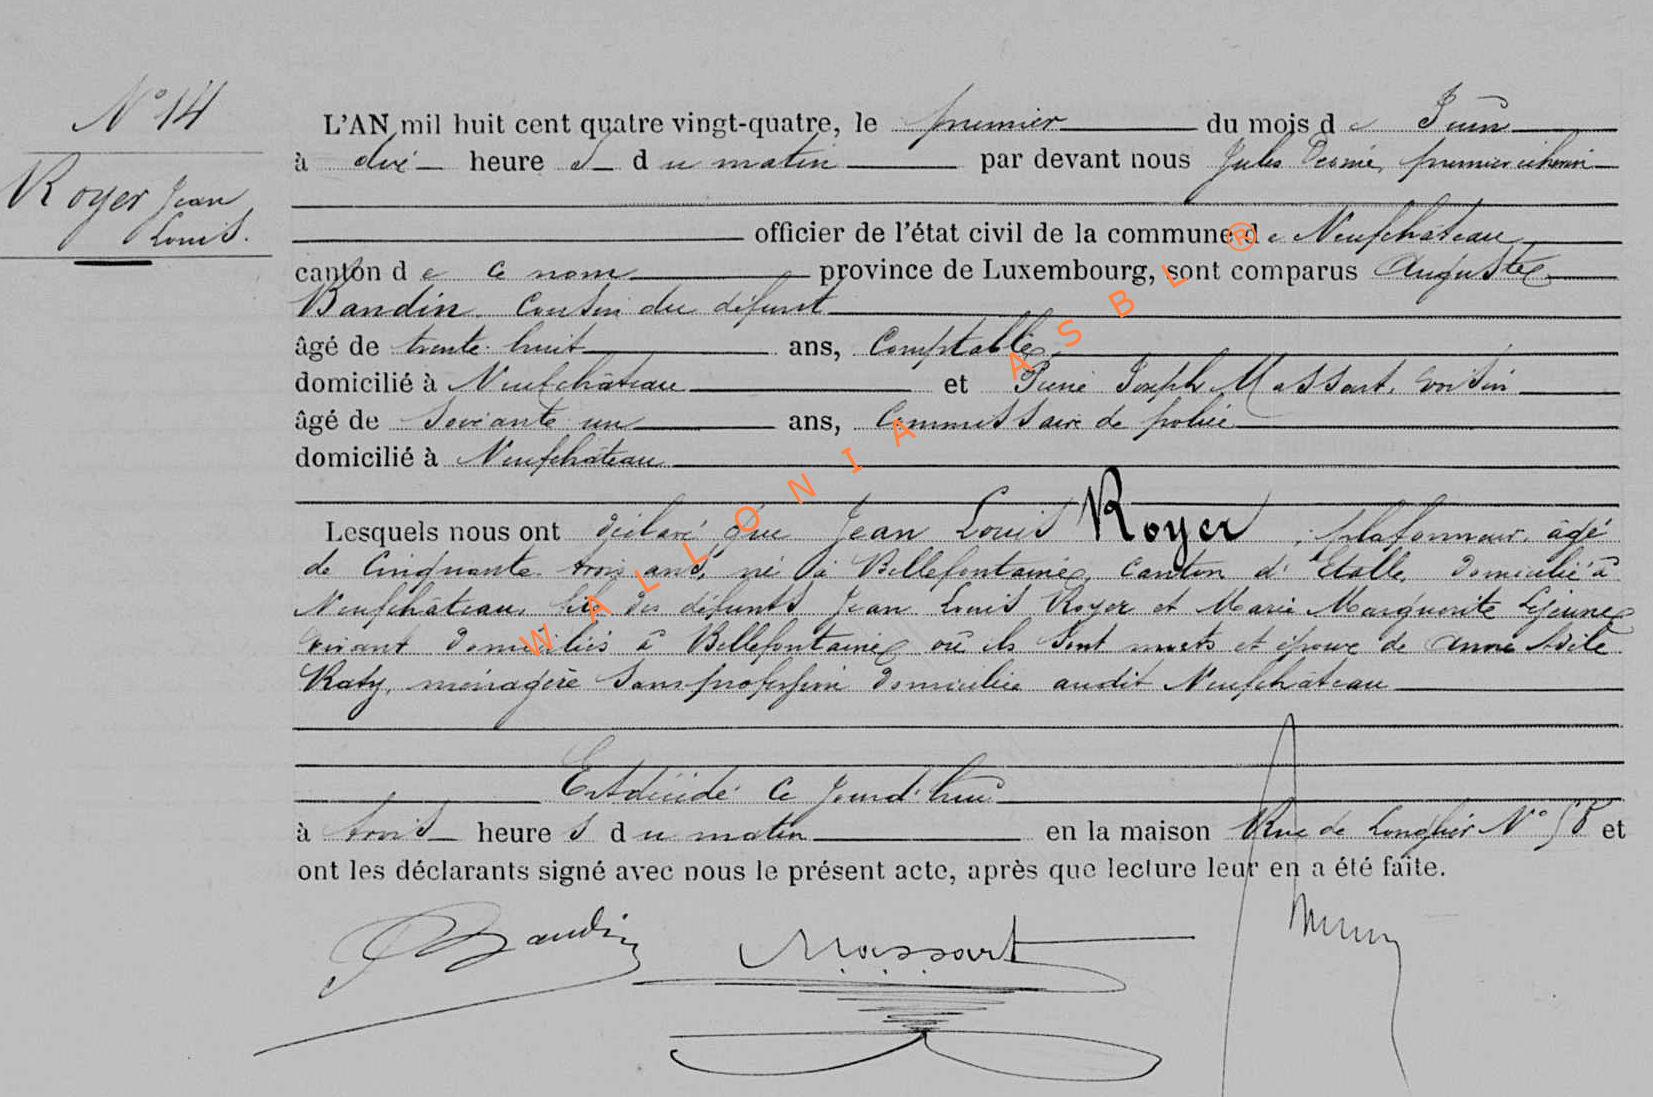 N° 14
Royer Jean
Louis.
L'AN mil huit cent quatre vingt-quatre, le premier du mois de Juin
à dix heure s du matin par devant nous Jules premier échevin
officier de l'état civil de la commune de Neufchateau
canton de ce nom province de Luxembourg, sont comparus Auguste
Baudin cousin du défunt
âgé de trente huit ans, Comptable
domicilié à Neufchâteau et Pierre Joseph Massart, voisin
âgé de soixante un ans, Commissaire de police
domicilié à Neufchâteau
Lesquels nous ont déclaré que Jean Louis Royer, plafonneur, âgé
de cinquante trois ans, né à Bellefontaine, canton d'Etalle, domicilié à
Neufchâteau, fils des défunts Jean Louis Royer et Marie Marguerite Lejeune
vivant domiciliés à Bellefontaine où ils sont morts et époux de Anne Adèle
Katy, ménagère sans profession domiciliée audit Neufchâteau
Est décédé ce jourd'hui
à trois heure s du matin en la maison Rue de Longlier N° 58 et
ont les déclarants signé avec nous le présent acte, après que lecture leur en a été faite.
Baudin
Massart
WALLONIA ASBL ®